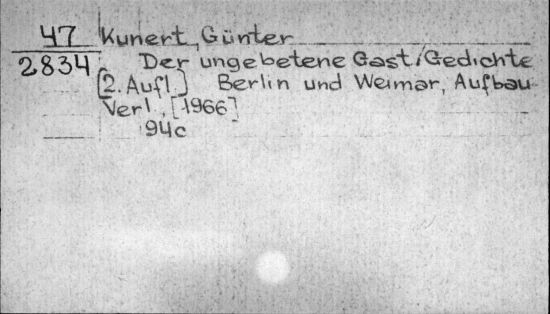 47 Kunert, Günter
2834 Der ungebetene Gast/Gedichte
[2. Aufl.] Berlin und Weimar, Aufbau-
Verl., [1966]
94c